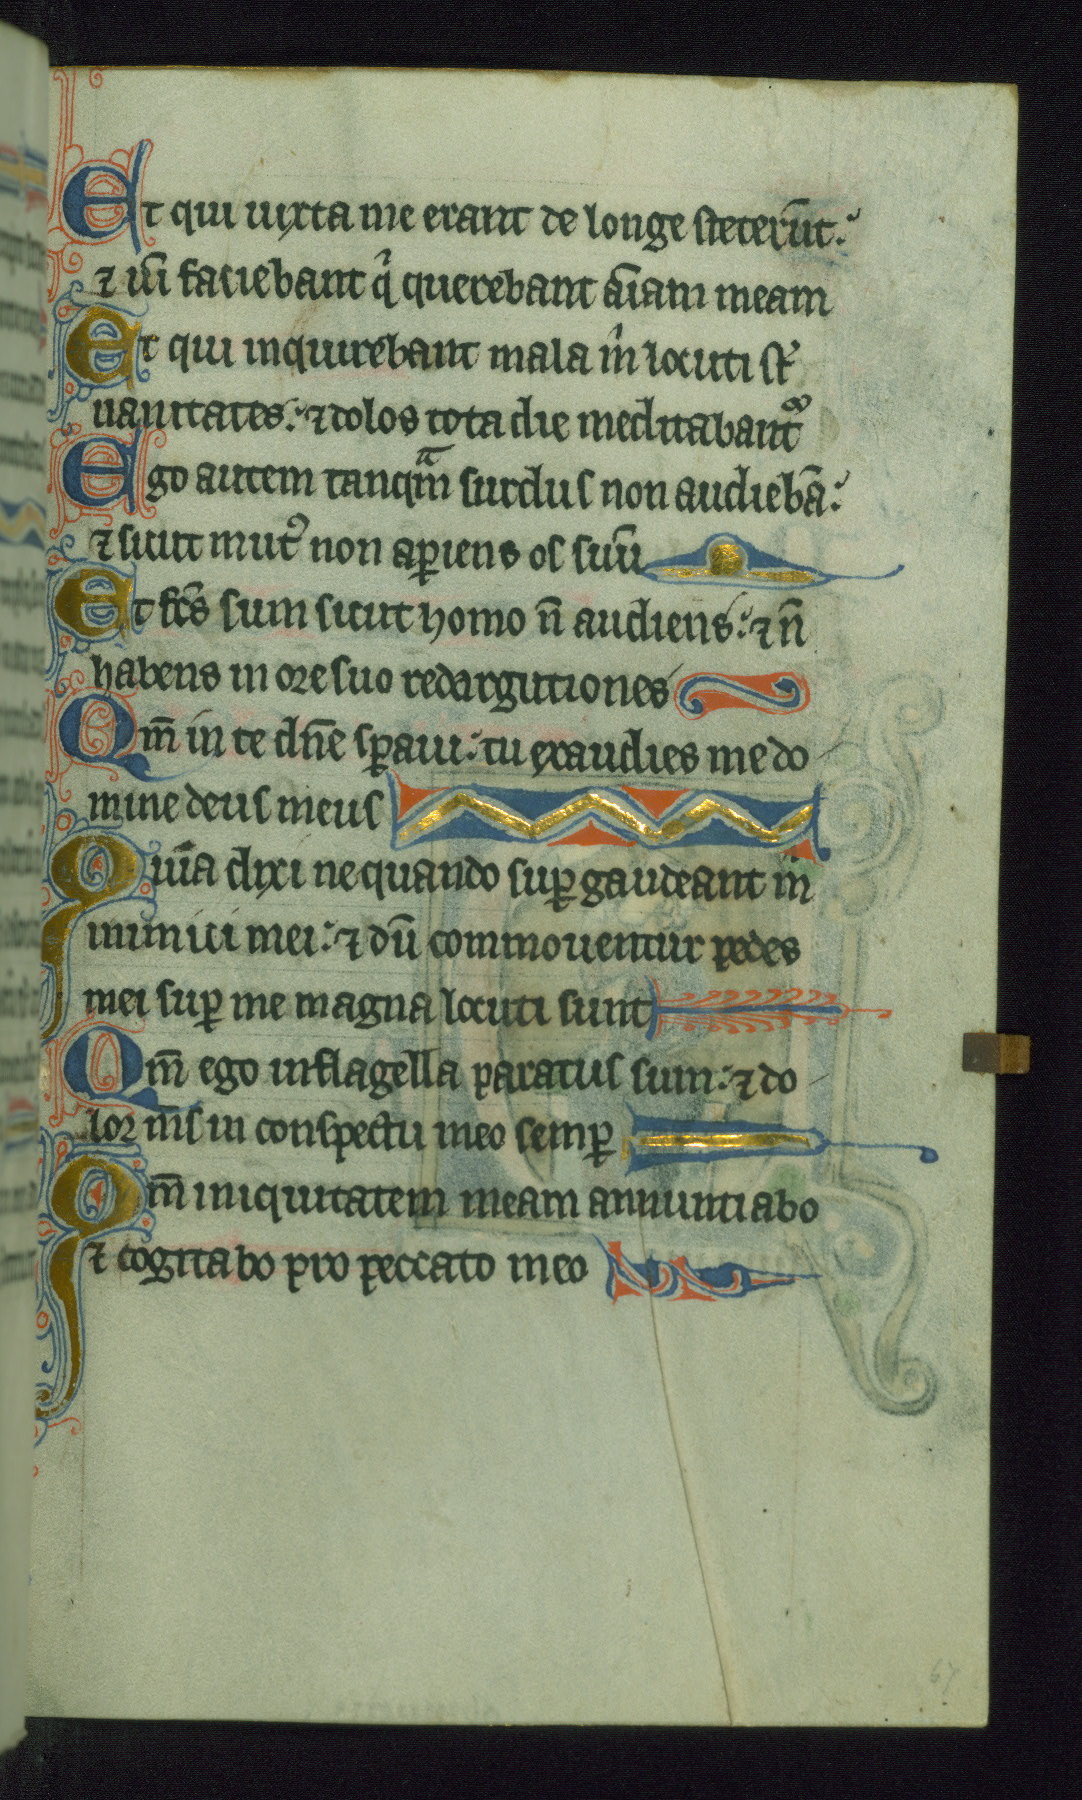 Et qui iuxta me erant de longe steterūt.
⁊ uī faciebant q̇ querebant āīam meam
Et qui inquirebant mala m̄ locuti sť
uanitates. ⁊ dolos tota die meditabantᷣ
Ego autem tanqᷓm surdus non audiebā.
⁊ sicut mutꝰ non aꝑiens os suū
Et fc̄s sum sicut homo n̄ audiens. ⁊ n̄
habens in ore suo redargutiones
Qm̄ in te dn̄e sꝑaui. tu exaudies me do
mine deus meus
Quīa dixi ne quando suꝑ gaudeant m̄
inimici mei. ⁊ dū commouentur pedes
mei suꝑ me magna locuti sunt
Qm̄ ego in flagella paratus sum. ⁊ do
lor m̄s in conspectu meo semꝑ
Qm̄ iniquitatem meam annuntiabo
⁊ cogitabo pro peccato meo
67